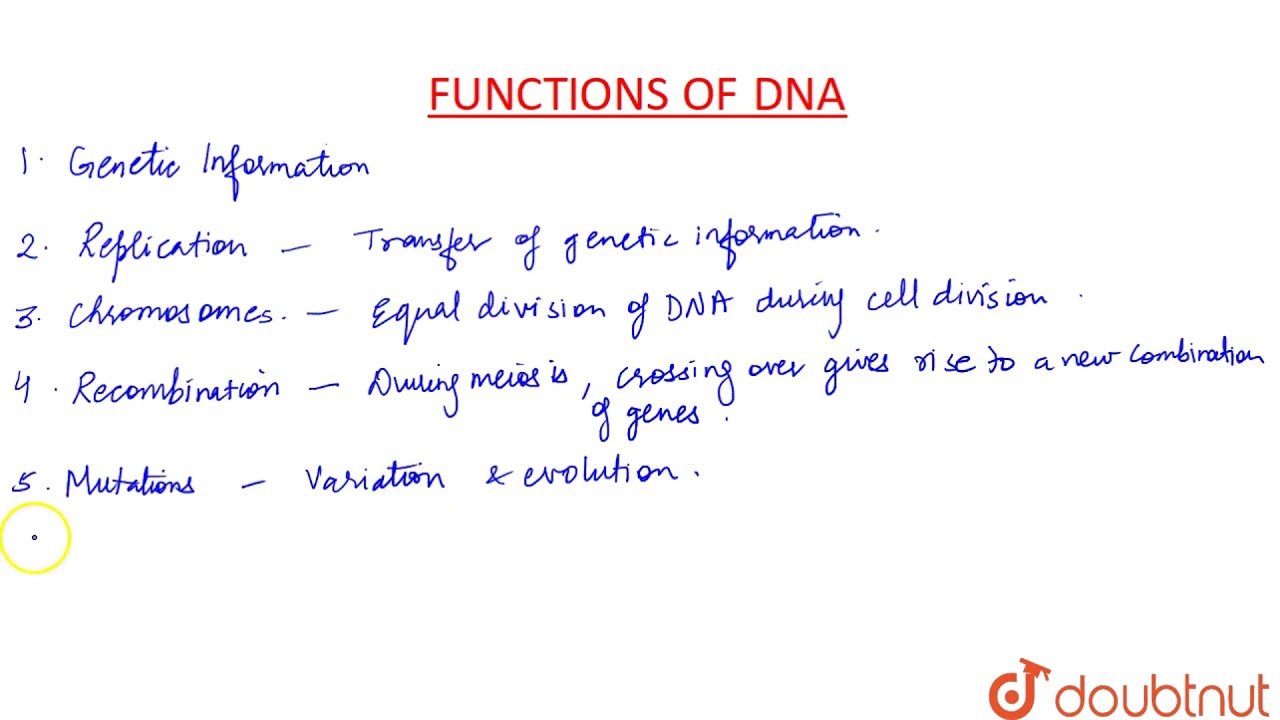 FUNCTIONS OF DNA
1. Genetic Information
2. Replication – Transfer of genetic information.
3. Chromosomes. – Equal division of DNA during cell division.
4. Recombination – During meiosis, crossing over gives rise to a new combination
of genes.
5. Mutations – Variation & evolution.
doubtnut